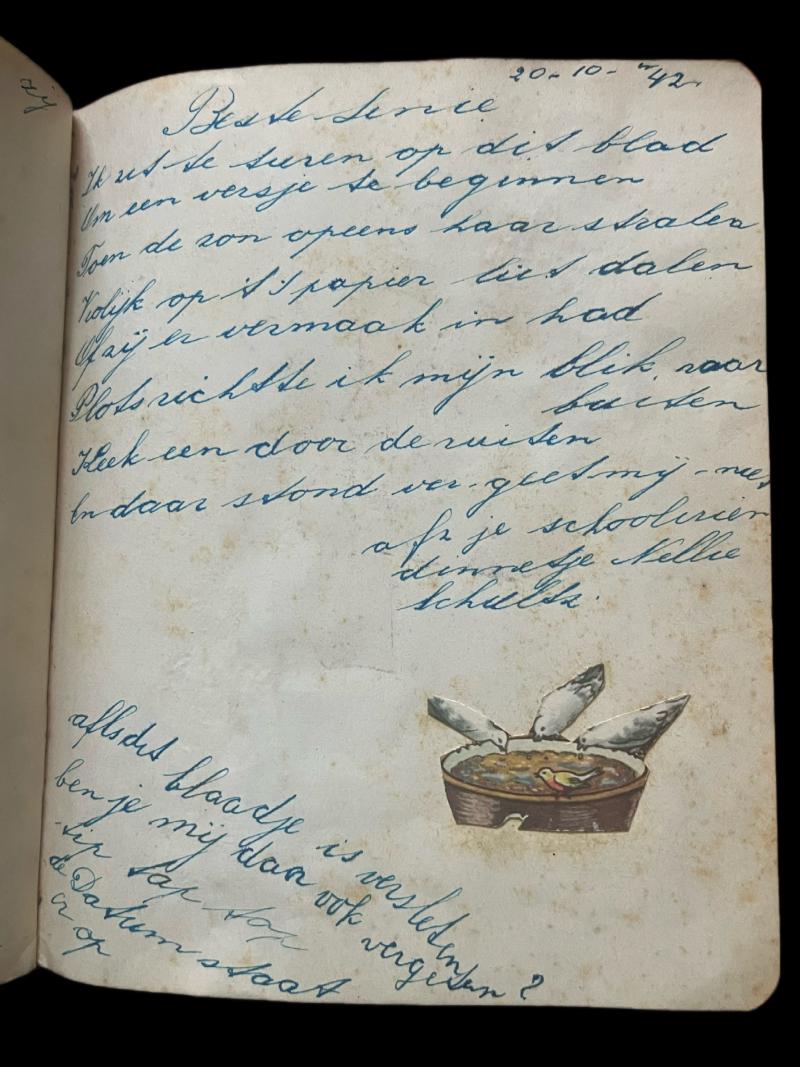 ij
20-10-'42
Beste Senie
Ik zit te turen op dit blad
Om een versje te beginnen
Toen de zon opeens haar stralen
Vrolijk op 't papier liet dalen
Of zij er vermaak in had
Plots richtte ik mijn blik naar
buiten
Keek een door de ruiten
En daar stond ver-geet mij-niet
afz je schoolvrien
dinnetje Nellie
Schultz.
afls dit blaadje is versleten
ben je mij dan ook vergeten?
tip tap top
de Datum staat
er op